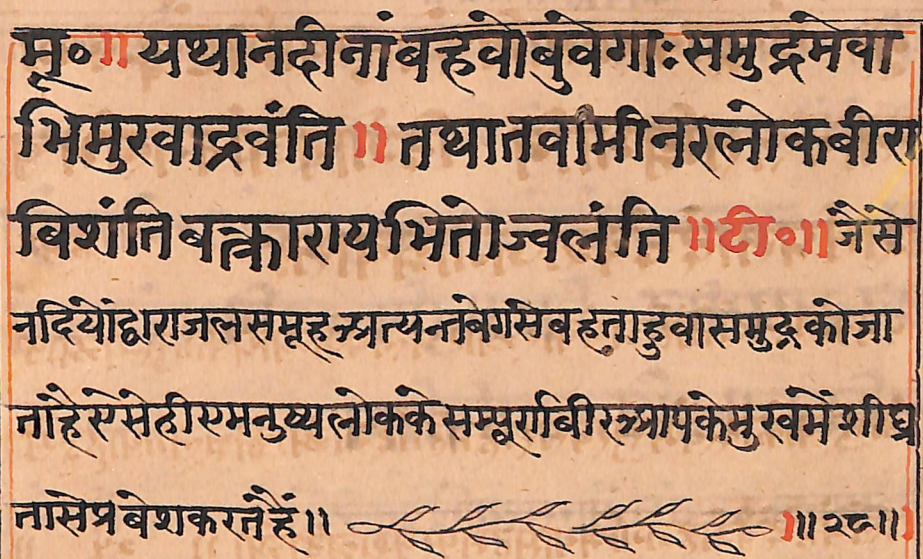 मू॰ ॥ यथानदीनांबहवोबुवेगाः समुद्रमेवा
भिमुखाद्रवंति ॥ तथातवामीनरलोकबीरा
बिशंतिबक्त्राराायभितोज्वलंति ॥ टी॰ ॥ जैसे
नदियोंद्वाराजलसमूहअत्यन्तबेगसेबहताहुवासमुद्रकोजा
ताहैऐसेहीएमनुष्यलोककेसम्पूर्राबीरआपकेमुखमेंशीघ्र
तासेप्रबेशकरतेहैं ॥ ॥ ॥ २८ ॥